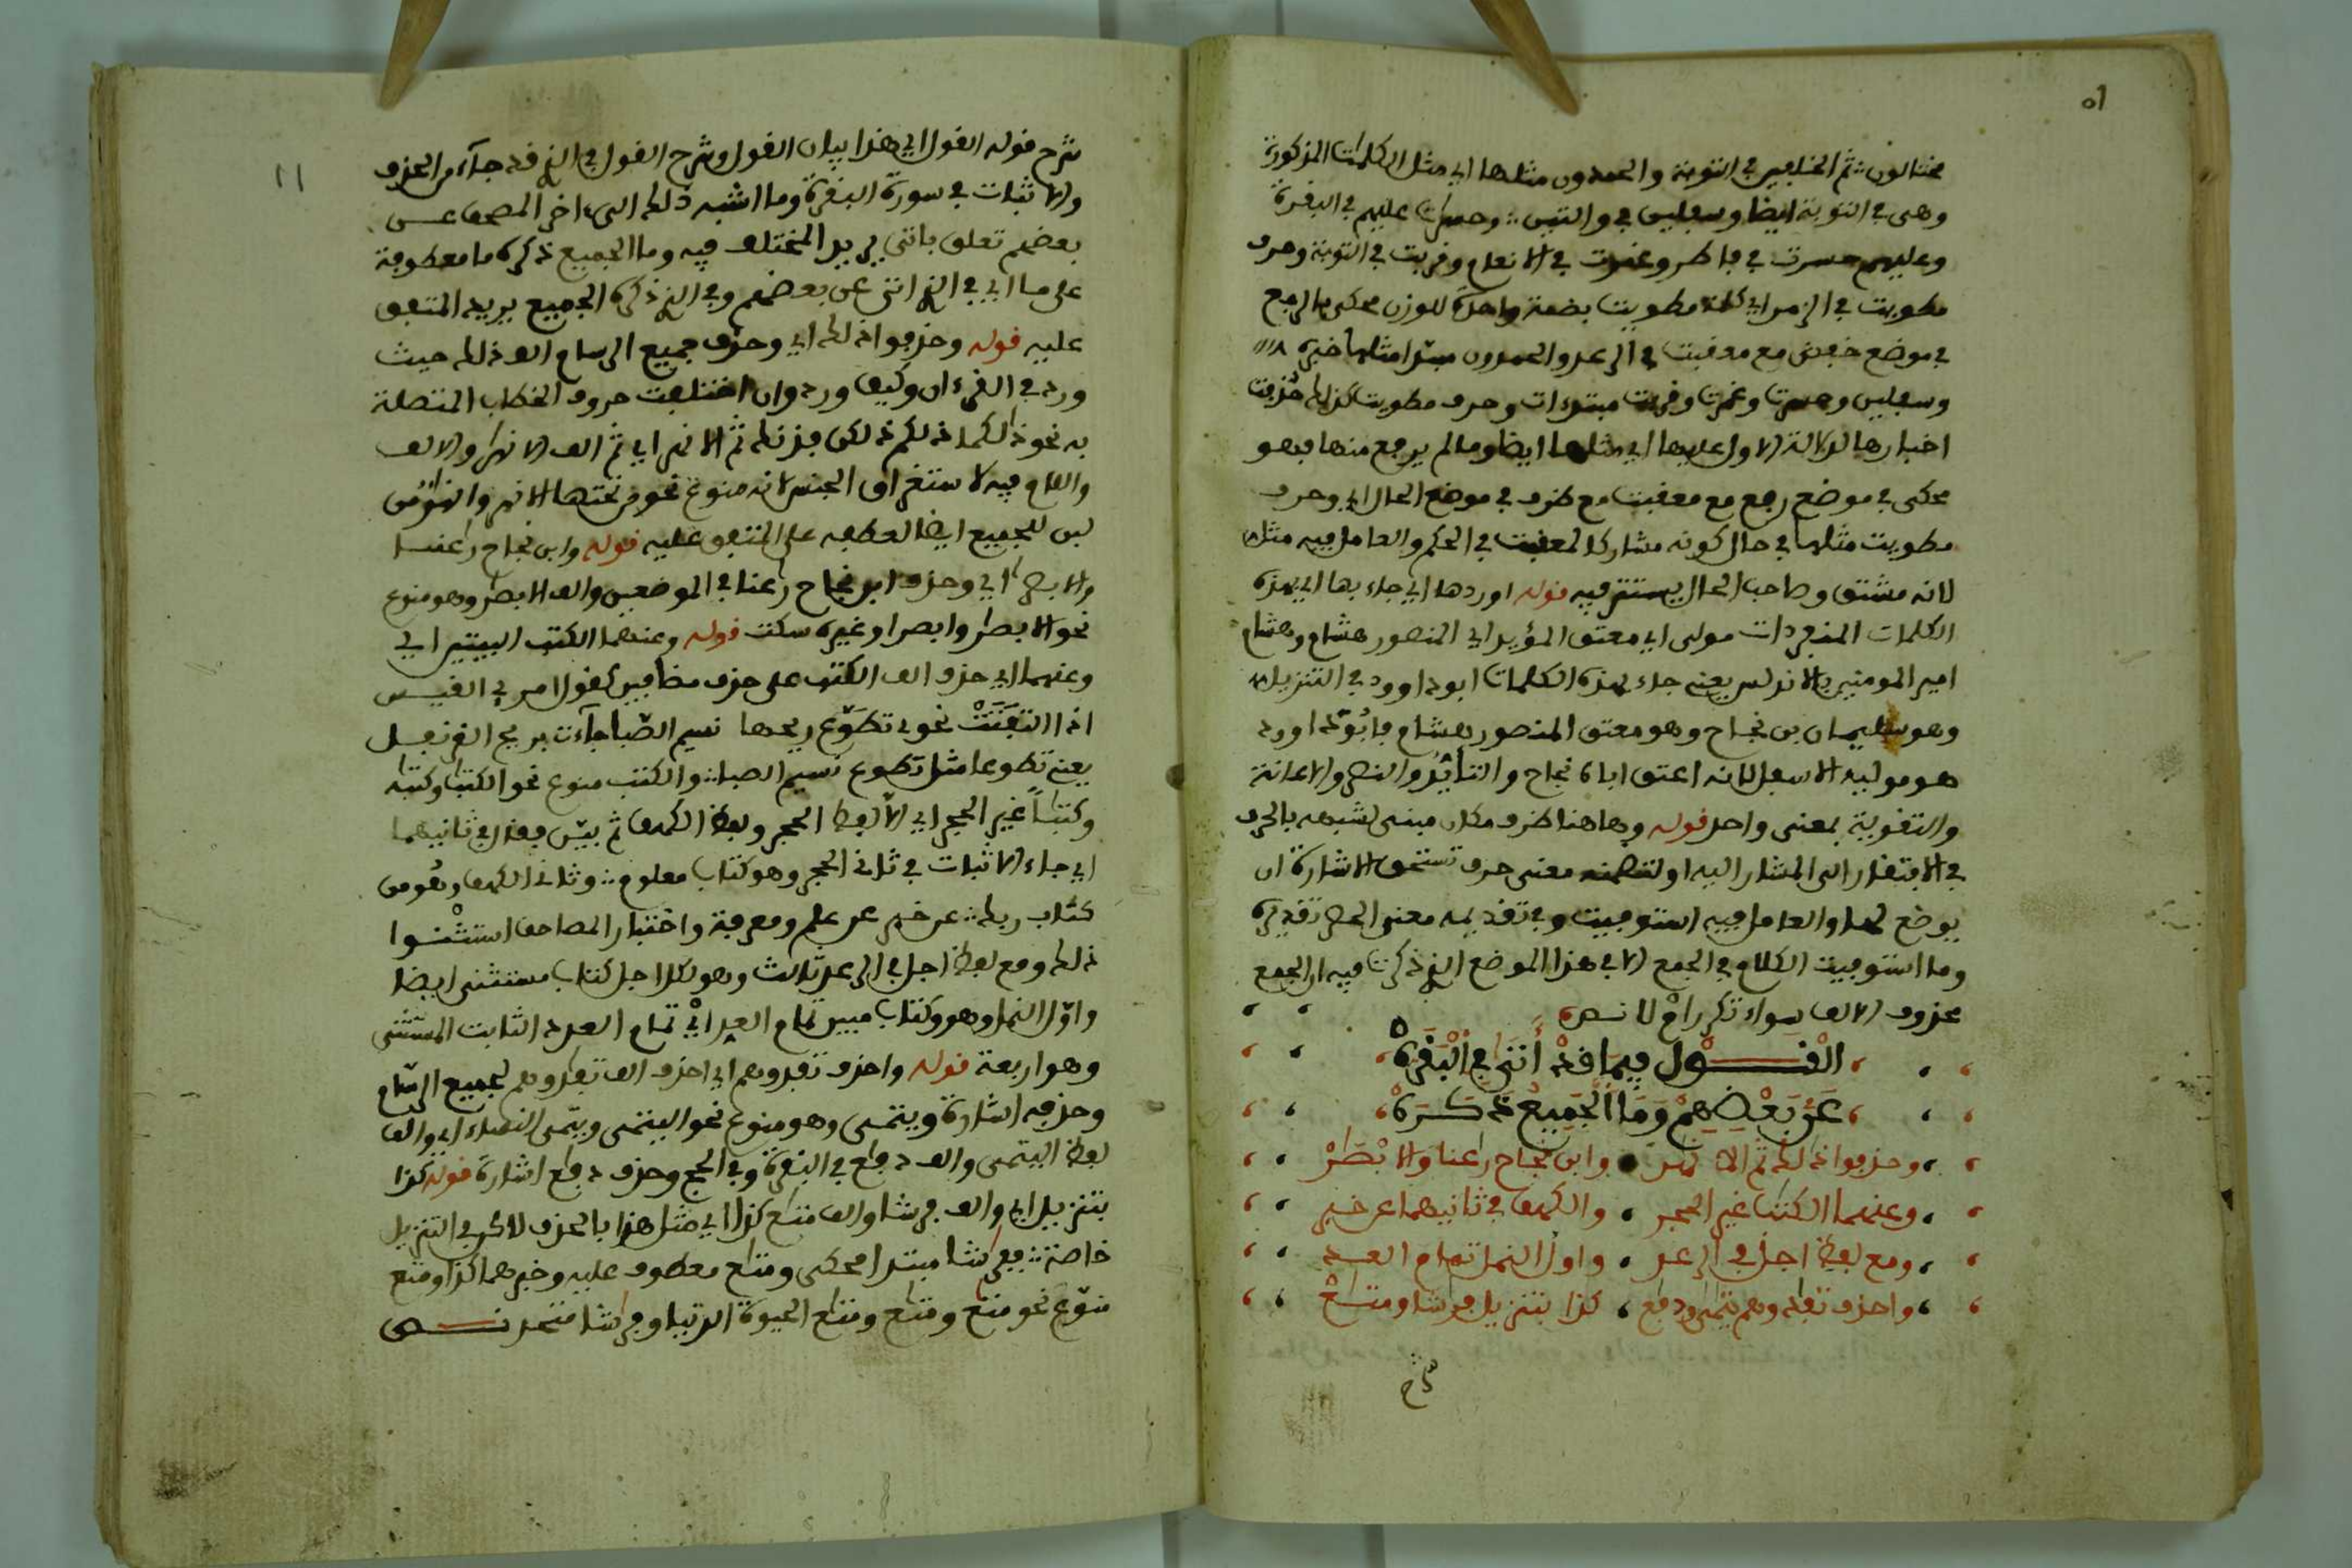 مختالون ثم الخلفين في التوبة والحمدون مثلها اي مثل الكلمات المذكورة
وهى في التوبة ايضا وسفلين في والتين وحسرات عليهم في البقرة
وعليهم حسرت في فاطر وغمرت في الانعام وقربت في التوبة وحرف
مطويت في الزمر اي كلمة مطويت بضمة واحدة للوزن محكى بالرفع
في موضع خفض مع معقبت في الرعد والحمدون مبتدا مثلها خبره
وسفلين وحسرت وغمرت وقربت مبتدءات وحرف مطويت كذلك حذفت
اخبارها لدلالة الاول عليها اي مثلها ايضا وما لم يرفع منها فهو
محكى في موضع رفع مع معقبت مع ظرف في موضع الحال اي وحرف
مطويت مثلها في حال كونه مشاركا لمعقبت في الحكم والعامل فيه مثل
لانه مشتق وصاحب الحال يستتر فيه قوله اوردها اي جاء بها اي بهذه
الكلمات المنفردات مولى اي معتق المؤيد اي المنصور هشام وهشام
امير المومنين بالاندلس يعني جاء بهذه الكلمات ابو داوود في التنزيل
وهو سليمان بن نجاح وهو معتق المنصور هشام
هو موليه الاسفل لانه اعتق اباه نجاح والتأييد والنصر والاعانة
والتقوية بمعنى واحد قوله وهاهنا ظرف مكان مبنى لشبهه بالحرف
في الافتقار الى المشار اليه او لتضمنه معنى حرف تستحق الاشارة ان
يوضع لها والعامل فيه استوفيت وفي تقديمه معنى الحصر تقديره
وما استوفيت الكلام في الجمع الا في هذا الموضع الذي ذكرت فيه ان الجمع
محذوف الالف سواء تكرر ام لا نص
القول فيما قد أتى في البقرة
عن بعضهم وما الجميع ذكره
وحذفوا ذلك ثم الانهر وابن نجاح راعنا والابصر
وعنهما الكتب غير الحجر والكهف في ثانيهما عن خبر
ومع لفظ اجل في الرعد واول النمل تمام العد
واحذف تفدوهم يتمى ودفع كذا بتنزيل فرشا ومتع
شرح
شرح قوله القول اي هذا بيان القول وشرح القول في الذي قد جاء من الحذف
والاثبات في سورة البقرة وما اشبه ذلك الى اخر المصحف عن
بعضهم تعلق باتى يريد المختلف فيه وما الجميع ذكره ما معطوفة
على ما اي في الذي اتى عن بعضهم وفي الذي ذكره الجميع يريد المتفق
عليه قوله وحذفوا ذلك اي وحذف جميع الرسام الف ذلك حيث
ورد في القرءان وكيف ورد وان اختلفت حروف الخطاب المتصلة
به نحو ذلكما ذلكم ذلكن فذنك ثم الانهر اي ثم الف الانهر والالف
واللام فيه لاستغراق الجنس لانه منوع نحو من تحتها الانهر وانهر من
لبن للجميع ايضا لعطفه على المتفق عليه قوله وابن نجاح راعنا
والابصر اي وحذف ابن نجاح راعنا في الموضعين والف الابصر وهو منوع
نحو الابصر وابصرا وغيره سكت قوله وعنهما الكتب البيتين اي
وعنهما اي حذف الف الكتب على حذف مضافين كقول امرئ القيس
اذا التفتت نحوي تضوع ريحها نسيم الصبا جاءت بريح القرنفل
يعني تضوعا مثل تضوع نسيم الصبا والكتب منوع نحو الكتب وكتب
وكتبا غير الحجر اي الا لفظ الحجر ولفظ الكهف ثم بين فقال في ثانيهما
اي جاء الاثبات في ثاني الحجر وهو كتاب معلوم وثاني الكهف وهو من
كتاب ربك عن خبر عن علم ومعرفة واختبار المصاحف استثنوا
ذلك ومع لفظ اجل في الرعد ثالث وهو لكل اجل كتاب مستثنى ايضا
واول النمل وهو وكتاب مبين تمام العد اي تمام العدد الثابت المستثنى
وهو اربعة قوله واحذف تفدوهم اي احذف الف تفدوهم لجميع الرسام
وحذفه اشارة ويتمى وهو منوع نحو اليتمى ويتمى النساء اي والف
لفظ اليتمى والف دفع في البقرة وفي الحج وحذف دفع اشارة قوله كذا
بتنزيل اي والف فرشا والف متع كذا اي مثل هذا بالحذف لاكن في التنزيل
خاصة ففرشا مبتدا محكى ومتع معطوف عليه وخبرهما كذا ومتع
منوع نحو متع ومتع ومتع الحيوة الدنيا وفرشا متحد نص